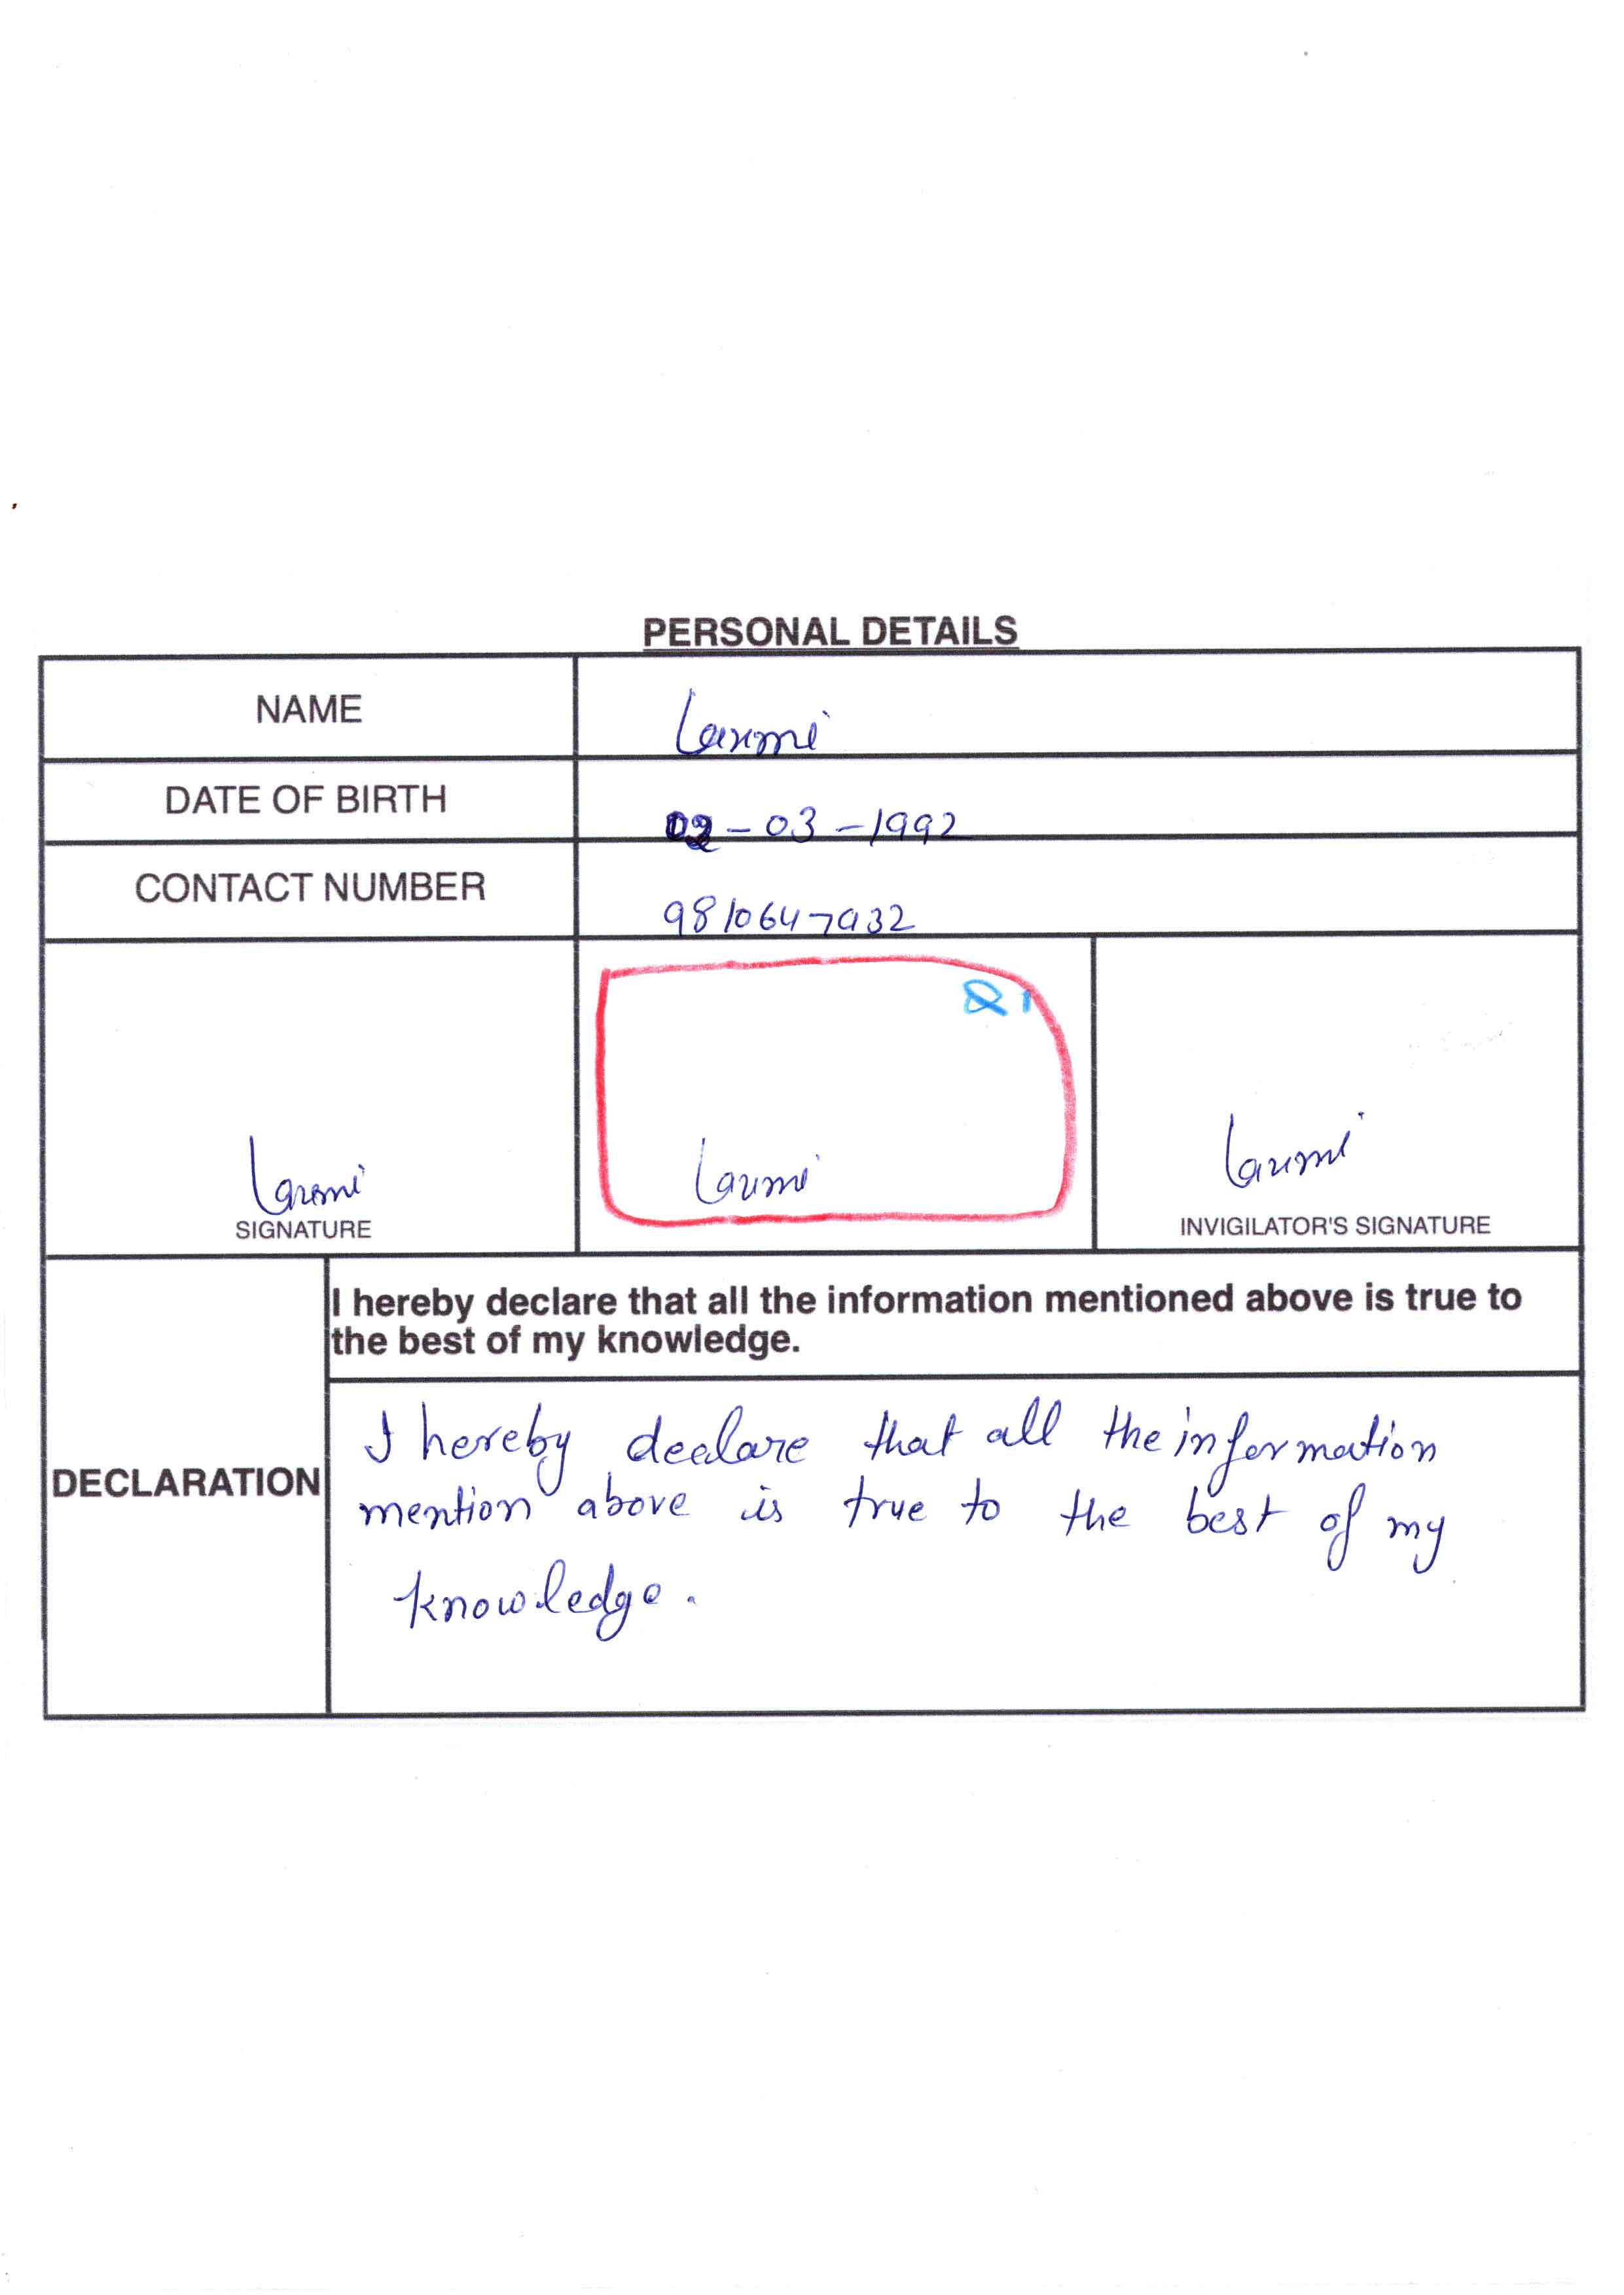 PERSONAL DETAILS
NAME
Laxmi
DATE OF BIRTH
02-03-1992
CONTACT NUMBER
9810647932
Q1
Laxmi
Laxmi
Laxmi
SIGNATURE
INVIGILATOR'S SIGNATURE
I hereby declare that all the information mentioned above is true to
the best of my knowledge.
DECLARATION
I hereby declare that all the information
mention above is true to the best of my
knowledge.